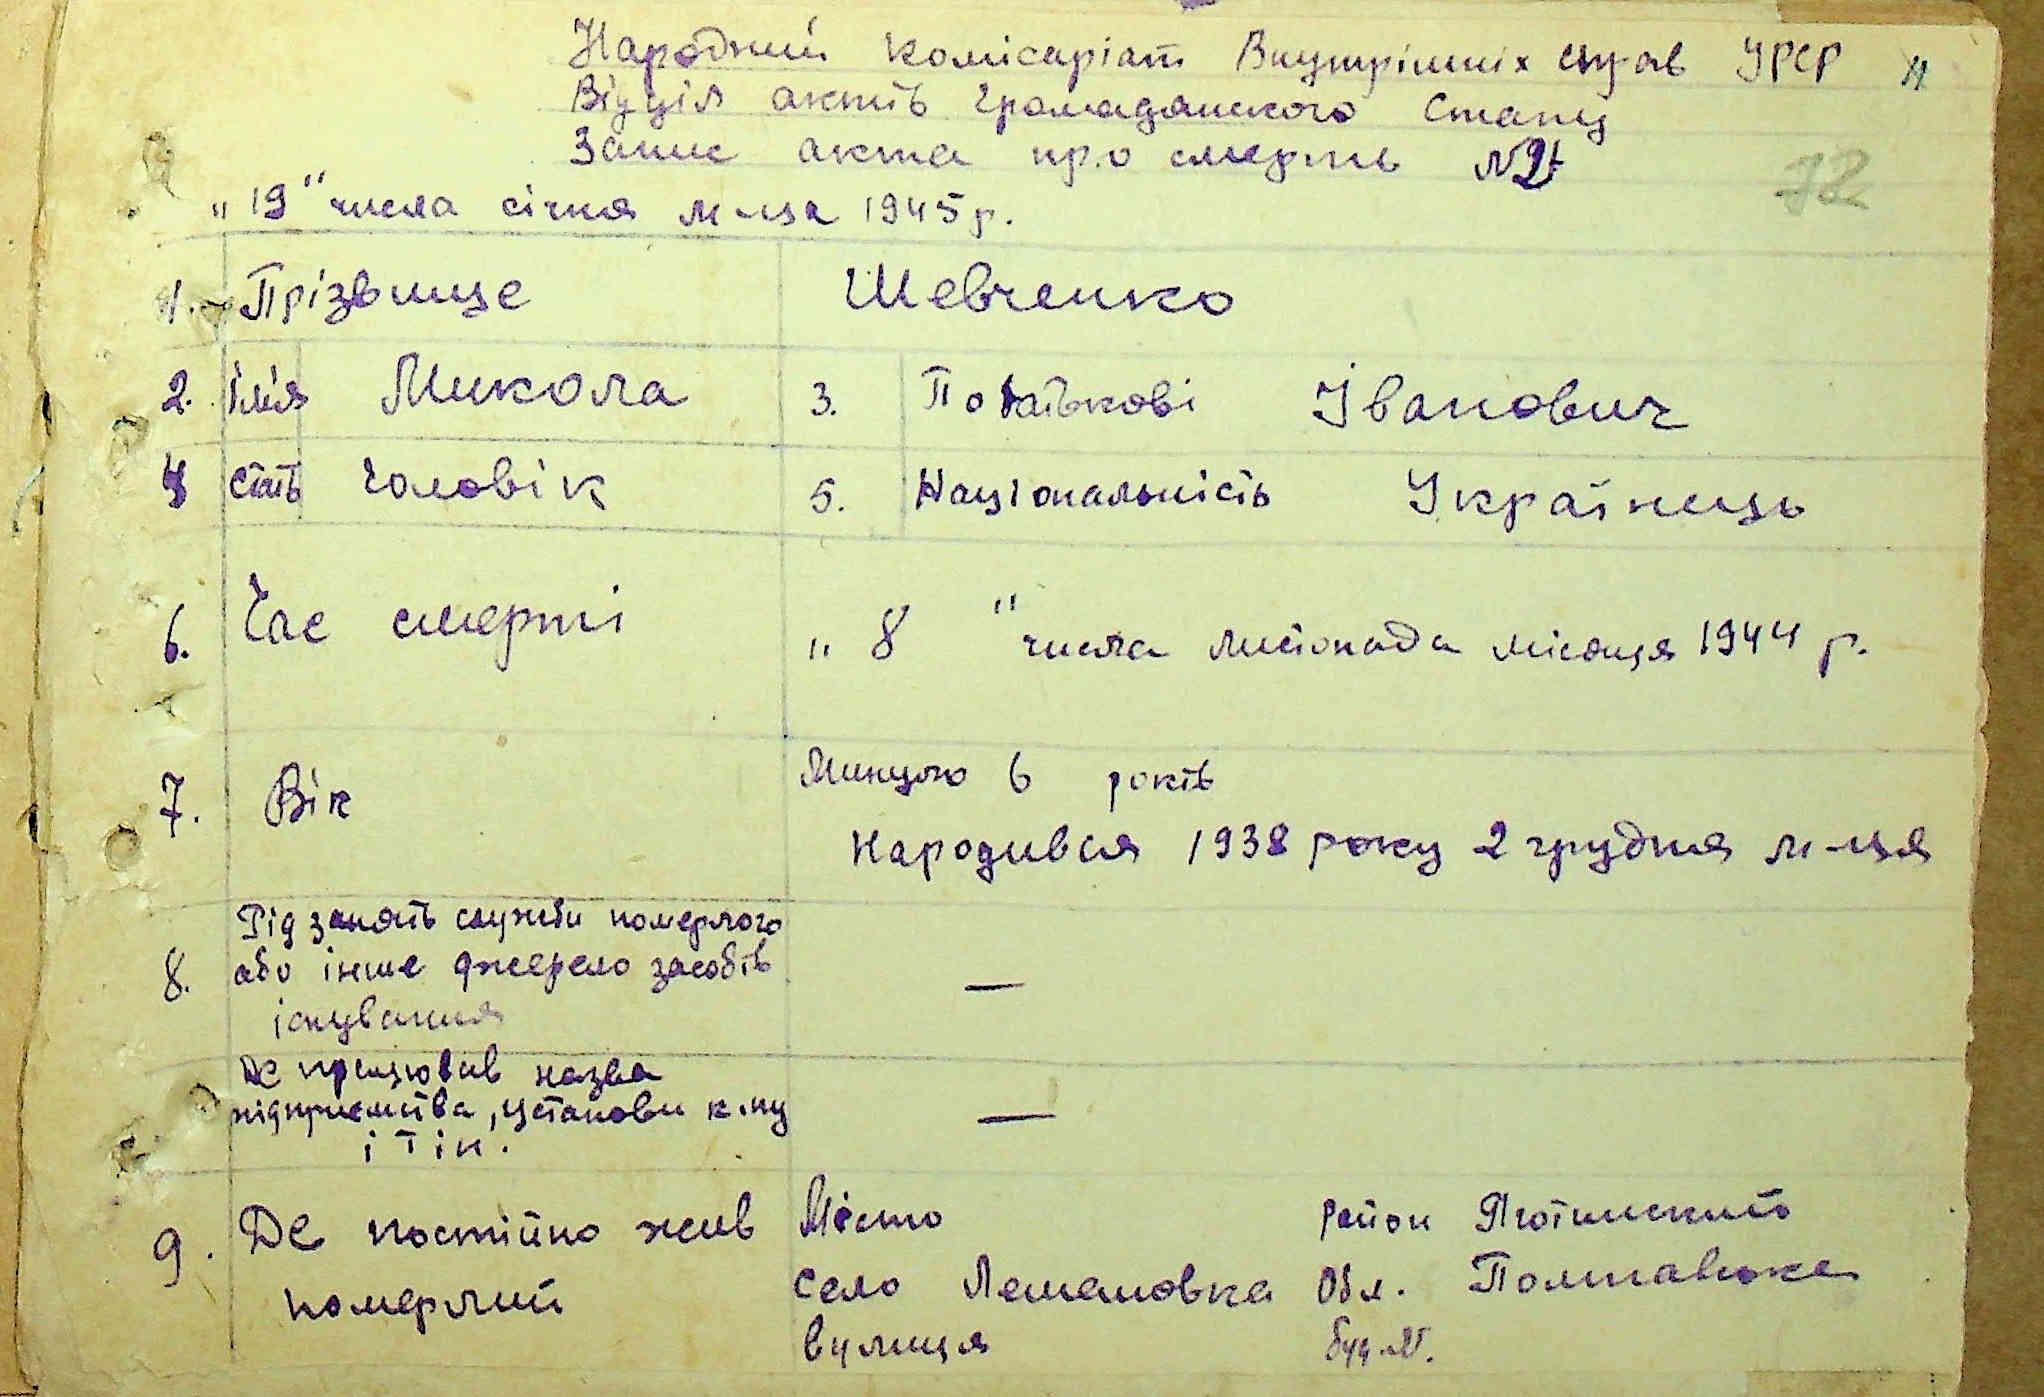 Народний Комісаріат Внутрішніх справ УРСР 11
Відділ актів громадянского Стану
Запис акта про смерть №
12
"19" числа січня м-ця 1945 р.
1. Прізвище Шевченко
2. Ім'я Микола 3. Побатькові Іванович
4 Стать Чоловік 5. Національність Українець
6. Час смерті "8" числа листопада місяця 1944 р.
7. Вік Минуло 6 років
Народився 1938 року 2 грудня м-ця
8. Рід занять служби померлого
або інше джерело засобів —
існування
Де працював назва
підприємства, установи к-пу —
і т ін.
9. Де постійно жив Місто район
померлий Село Обл. Полтавська
вулиця буд №.